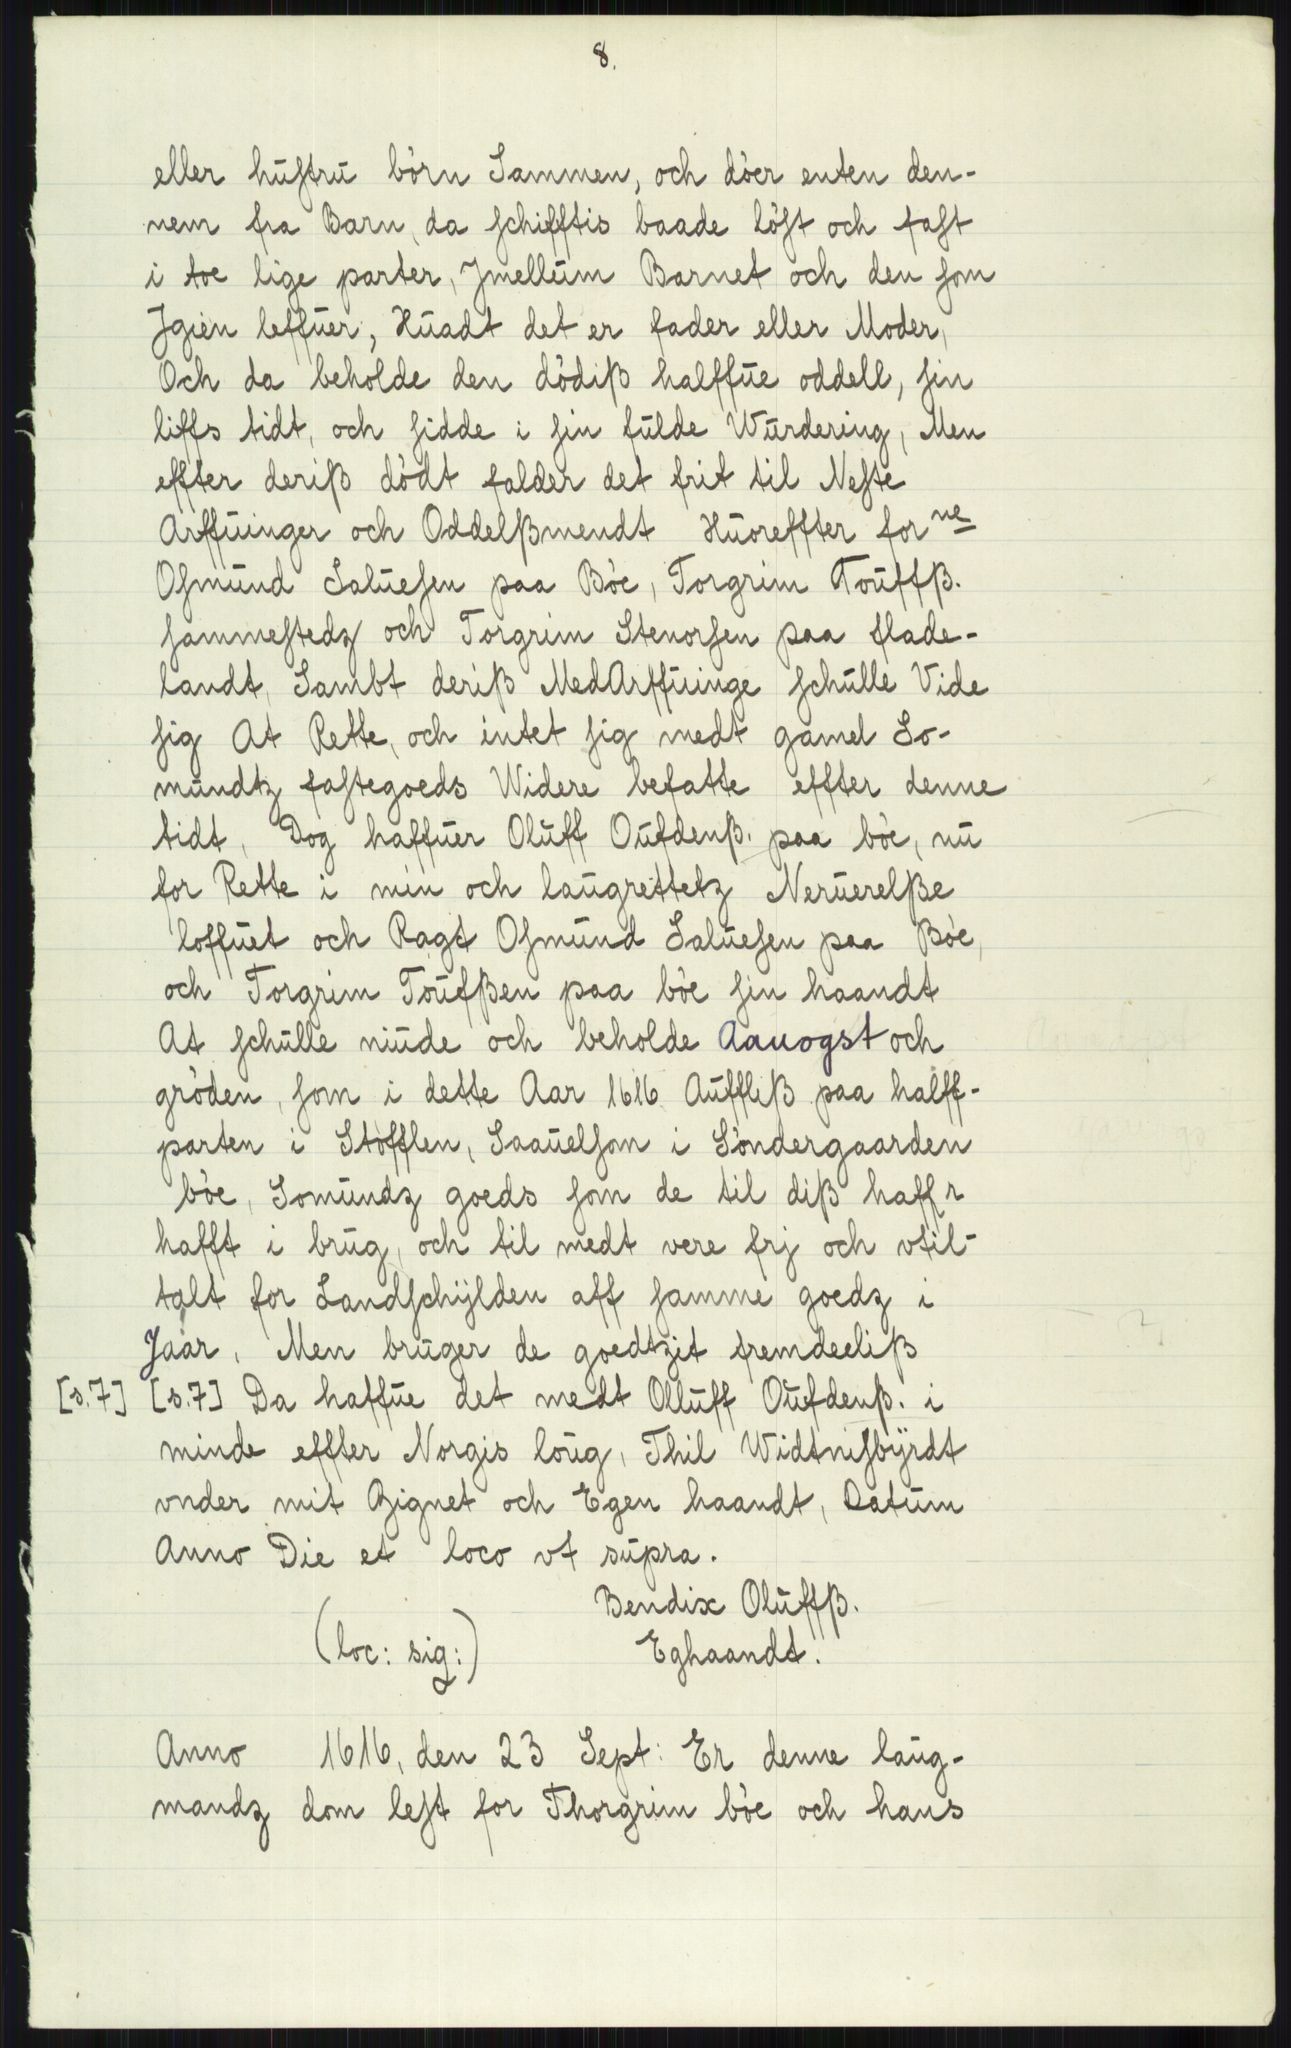 8.
eller huſtru börn Sammen, och döer enten den-
nem fra Barn, da ſchifftis baade löſt och faſt
i toe lige parter, Jmellum Barnet och den ſom
Jgien leffuer, Huadt det er fader eller Moder,
Och da beholde den dödiß halffue oddell, ſin
liffs tidt, och ſidde i ſin fulde Wurdering, Men
effter deriß dödt falder det frit til Neſte
Arffuinger och Oddelßmendt Huoreffter for ne
Oſmund Salueſen paa Böe, Torgrim Touffß.
ſammeſtedz och Torgrim Stenorſen paa flade-
landt, Sambt deriß MedArffuinge ſchulle Vide
ſig At Rette, och intet ſig medt gamel So-
mundtz faſtegoeds Widere befatte effter denne
tidt, Dog haffuer Oluff Oufdenß. paa böe, nu
for Rette i min och laugrettetz Neruerelße
loffuet och Ragt Oſmund Salueſen paa Böe,
och Torgrim Toufßen paa böe ſin haandt
At ſchulle niude och beholde Aauogst och
gröden, ſom i dette Aar 1616 Auffliß paa halff-
parten i Stöfflen, Saauelſom i Söndergaarden
böe, Somundz goeds ſom de til diß haffr
hafft i brug, och til medt vere frj och vtil-
talt for Landſchÿlden aff ſamme goedz i
Jaar, Men bruger de goedtzit fremdeeliß
[s.7] [s.7] Da haffue det medt Olluff Oufdenß. i
minde effter Norgis loug, Thil Widtniſbÿrdt
vnder mit Zignet och Egen haandt, Datum
Anno Die et loco vt supra.
Bendix Oluffß.
(loc: sig:) Eghaandt.
Anno 1616, den 23 Sept: Er denne laug-
mandz dom leſt for Thorgrim böe och hans